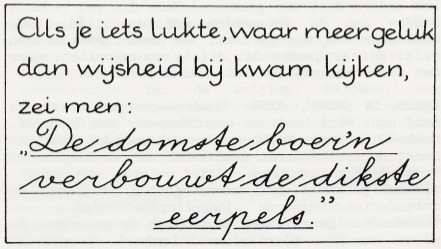 Als je iets lukte, waar meer geluk
dan wijsheid bij kwam kijken,
zei men:
„De domste boer'n
verbouwt de dikste
eerpels.”